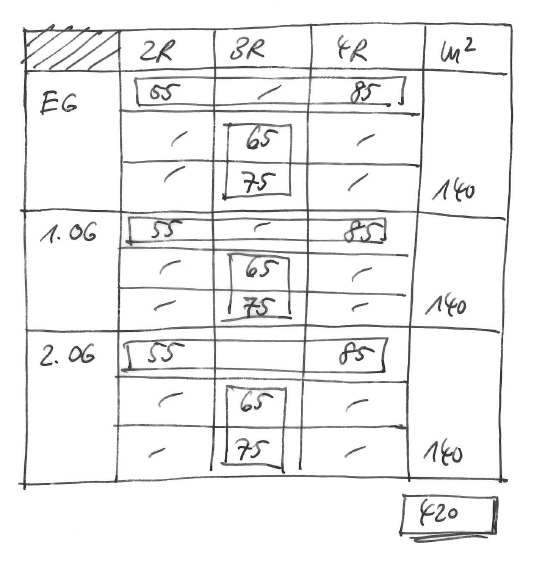 2R 3R 4R m²
EG 55 – 85
– 65 –
– 75 – 140
1. OG 55 – 85
– 65 –
– 75 – 140
2. OG 55 85
– 65 –
– 75 – 140
420